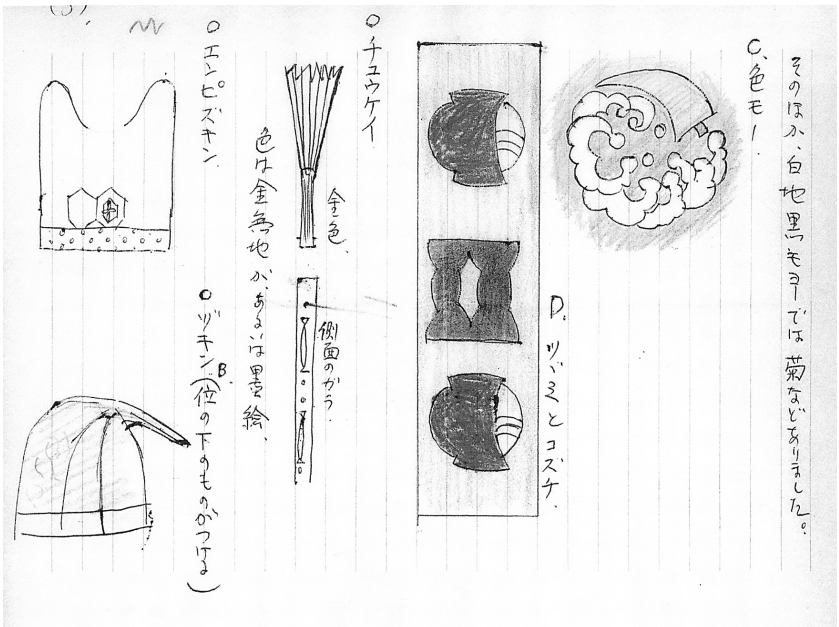 そのほか、白地黒モヨーでは菊などありました。
C、色モー.
D. ツヅミとコズチ.
○チュウケイ
金色.
側面のガラ.
色は金無地が、あるいは墨絵、
○エンピズキン.
○ヅキン(位の下のものがつける)
B.